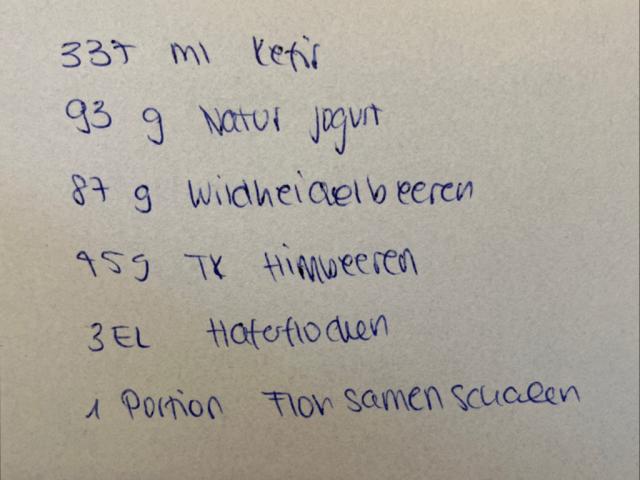 337 ml Kefir
93 g Natur jogurt
87 g Wildheidelbeeren
45g TK Himbeeren
3 EL Haferflocken
1 Portion Flohsamenschalen